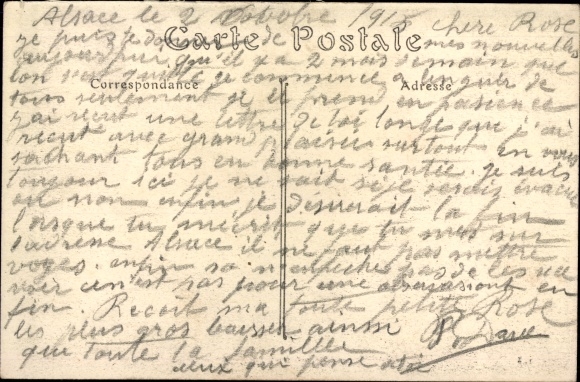 Alsace le 2 Octobre 1915 chere Rose
je puis te donner de mes nouvelles
aujourd'hui qu'il y a 2 mois demain que
Carte Postale
Correspondance
Adresse
l'on quitté je commence a languir de
tous seulement je le prend en pasience
j'ai recut une lettre de toi longe que j'ai
recut avec grand plaisir surtout en vous
sachant tous en bonne santée. Je suis
toujour ici je ne sait si je serais évacué
ou non enfin je desirerait la fin
lorsque tu m'écrit que tu met sur
l'adresse Alsace il ne faut pas mettre
voges. enfin sa n'enpêche pas de les
ce n'est pas pour une occasion en
fin. Recoit ma toute petite Rose
les plus gros baiser ainsi
que toute la famille
celui qui pense a toi